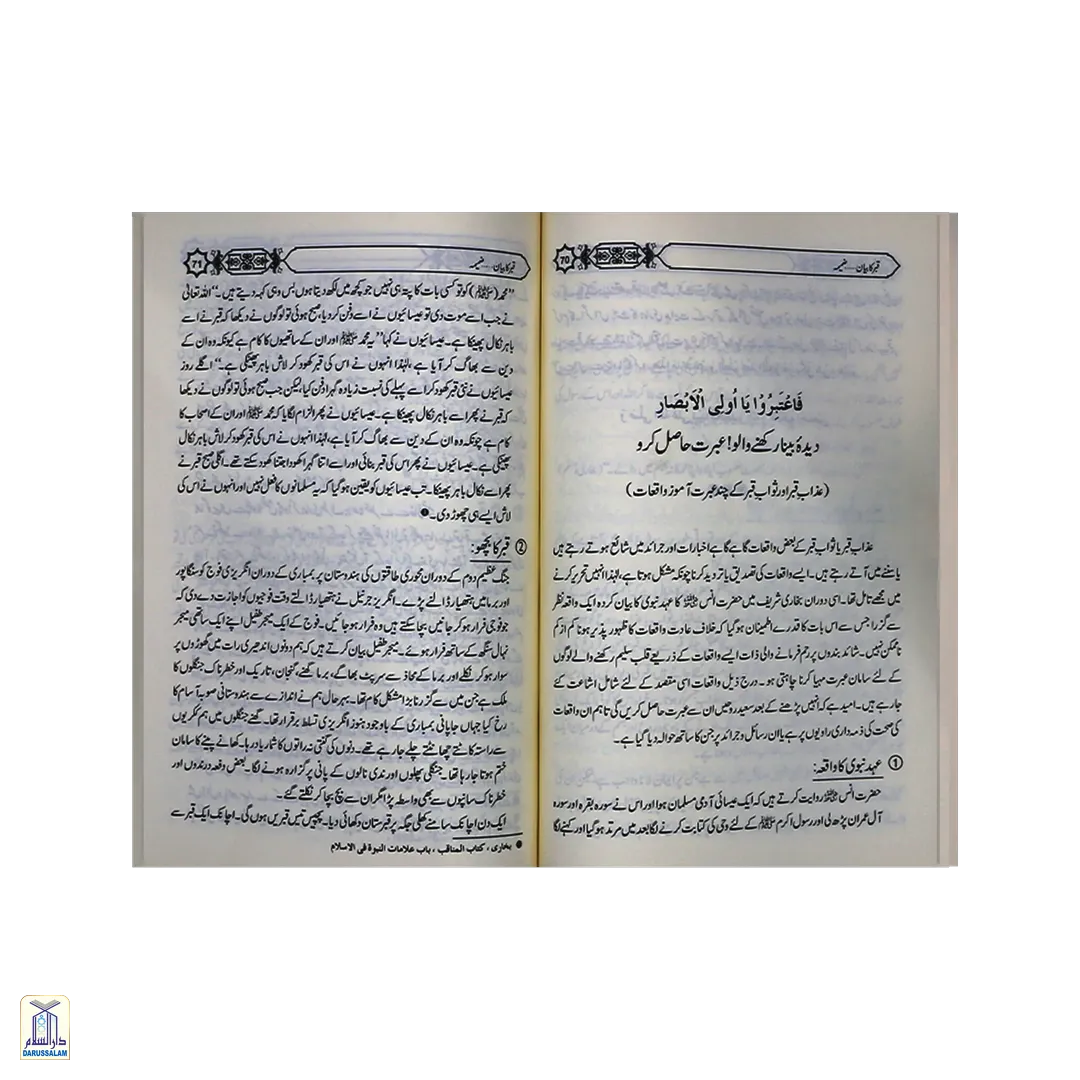 قبر کا بیان ..... ضمیمہ
70
فَاعْتَبِرُوْا يَا اُولِى الْاَبْصَارِ
دیدۂ بینا رکھنے والو! عبرت حاصل کرو
(عذاب قبر اور ثواب قبر کے چند عبرت آموز واقعات)
عذاب قبر یا ثواب قبر کے بعض واقعات گاہے گاہے اخبارات اور جرائد میں شائع ہوتے رہتے ہیں
یا سننے میں آتے رہتے ہیں۔ ایسے واقعات کی تصدیق یا تردید کرنا چونکہ مشکل ہوتا ہے، لہٰذا انہیں تحریر کرنے
میں مجھے تامل تھا۔ اسی دوران بخاری شریف میں حضرت انس ﷜ کا عہد نبوی کا بیان کردہ ایک واقعہ نظر
سے گزرا جس سے اس بات کا قدرے اطمینان ہو گیا کہ خلاف عادت واقعات کا ظہور پذیر ہونا کم از کم
ناممکن نہیں۔ شائد بندوں پر رحم فرمانے والی ذات ایسے واقعات کے ذریعے قلب سلیم رکھنے والے لوگوں
کے لئے سامان عبرت مہیا کرنا چاہتی ہو۔ درج ذیل واقعات اسی مقصد کے لئے شامل اشاعت کئے
جا رہے ہیں۔ امید ہے کہ انہیں پڑھنے کے بعد سعید روحیں ان سے عبرت حاصل کریں گی تاہم ان واقعات
کی صحت کی ذمہ داری راویوں پر ہے یا ان رسائل و جرائد پر جن کا ساتھ حوالہ دیا گیا ہے۔
① عہد نبوی کا واقعہ:
حضرت انس ﷜ روایت کرتے ہیں کہ ایک عیسائی آدمی مسلمان ہوا اور اس نے سورہ بقرہ اور سورہ
آل عمران پڑھ لی اور رسول اکرم ﷺ کے لئے وحی کی کتابت کرنے لگا بعد میں مرتد ہو گیا اور کہنے لگا
قبر کا بیان ..... ضمیمہ
71
"محمد (ﷺ) کو تو کسی بات کا پتہ ہی نہیں جو کچھ میں لکھ دیتا ہوں بس وہی کہہ دیتے ہیں۔" اللہ تعالیٰ
نے جب اسے موت دی تو عیسائیوں نے اسے دفن کر دیا، صبح ہوئی تو لوگوں نے دیکھا کہ قبر نے اسے
باہر نکال پھینکا ہے۔ عیسائیوں نے کہا "یہ محمد ﷺ اور ان کے ساتھیوں کا کام ہے کیونکہ وہ ان کے
دین سے بھاگ کر آیا ہے، لہٰذا انہوں نے اس کی قبر کھود کر لاش باہر پھینکی ہے۔" اگلے روز
عیسائیوں نے نئی قبر کھود کر اسے پہلے کی نسبت زیادہ گہرا دفن کیا، لیکن جب صبح ہوئی تو لوگوں نے دیکھا
کہ قبر نے پھر اسے باہر نکال پھینکا ہے۔ عیسائیوں نے پھر الزام لگایا کہ محمد ﷺ اور ان کے اصحاب کا
کام ہے چونکہ وہ ان کے دین سے بھاگ کر آیا ہے، لہٰذا انہوں نے اس کی قبر کھود کر لاش باہر نکال
پھینکی ہے۔ عیسائیوں نے پھر اس کی قبر بنائی اور اسے اتنا گہرا کھودا جتنا کھود سکتے تھے۔ اگلی صبح قبر نے
پھر اسے نکال باہر پھینکا۔ تب عیسائیوں کو یقین ہو گیا کہ یہ مسلمانوں کا فعل نہیں اور انہوں نے اس کی
لاش ایسے ہی چھوڑ دی۔ ❶
② قبر کا بچھو:
جنگ عظیم دوم کے دوران محوری طاقتوں کی ہندوستان پر بمباری کے دوران انگریزی فوج کو سنگاپور
اور برما میں ہتھیار ڈالنے پڑے۔ انگریز جرنیل نے ہتھیار ڈالتے وقت فوجیوں کو اجازت دے دی کہ
جو فوجی فرار ہو کر جانیں بچا سکتے ہیں وہ فرار ہو جائیں۔ فوج کے ایک میجر طفیل اپنے ایک ساتھی میجر
نہال سنگھ کے ساتھ فرار ہوئے۔ میجر طفیل بیان کرتے ہیں کہ ہم دونوں اندھیری رات میں گھوڑوں پر
سوار ہو کر نکلے اور برما کے محاذ سے سرپٹ بھاگے، برما گھنے، گنجان، تاریک اور خطرناک جنگلوں کا
ملک ہے جن میں سے گزرنا بڑا مشکل کام تھا۔ بہرحال ہم نے اندازے سے ہندوستانی صوبہ آسام کا
رخ کیا جہاں جاپانی بمباری کے باوجود ہنوز انگریزی تسلط برقرار تھا۔ گھنے جنگلوں میں ہم کمریوں
سے راستہ کاٹتے چھانٹتے چلے جا رہے تھے۔ دنوں کی گنتی نہ راتوں کا شمار یاد رہا۔ کھانے پینے کا سامان
ختم ہوتا جا رہا تھا۔ جنگلی پھلوں اور ندی نالوں کے پانی پر گزارہ ہونے لگا۔ بعض دفعہ درندوں اور
خطرناک سانپوں سے بھی واسطہ پڑا مگر ان سے بچ بچا کر نکلتے گئے۔
ایک دن اچانک سامنے کھلی جگہ پر قبرستان دکھائی دیا۔ پچیس تیس قبریں ہوں گی۔ اچانک ایک قبر سے
❶ بخاری ، کتاب المناقب ، باب علامات النبوة فی الاسلام
دارالسلام
DARUSSALAM